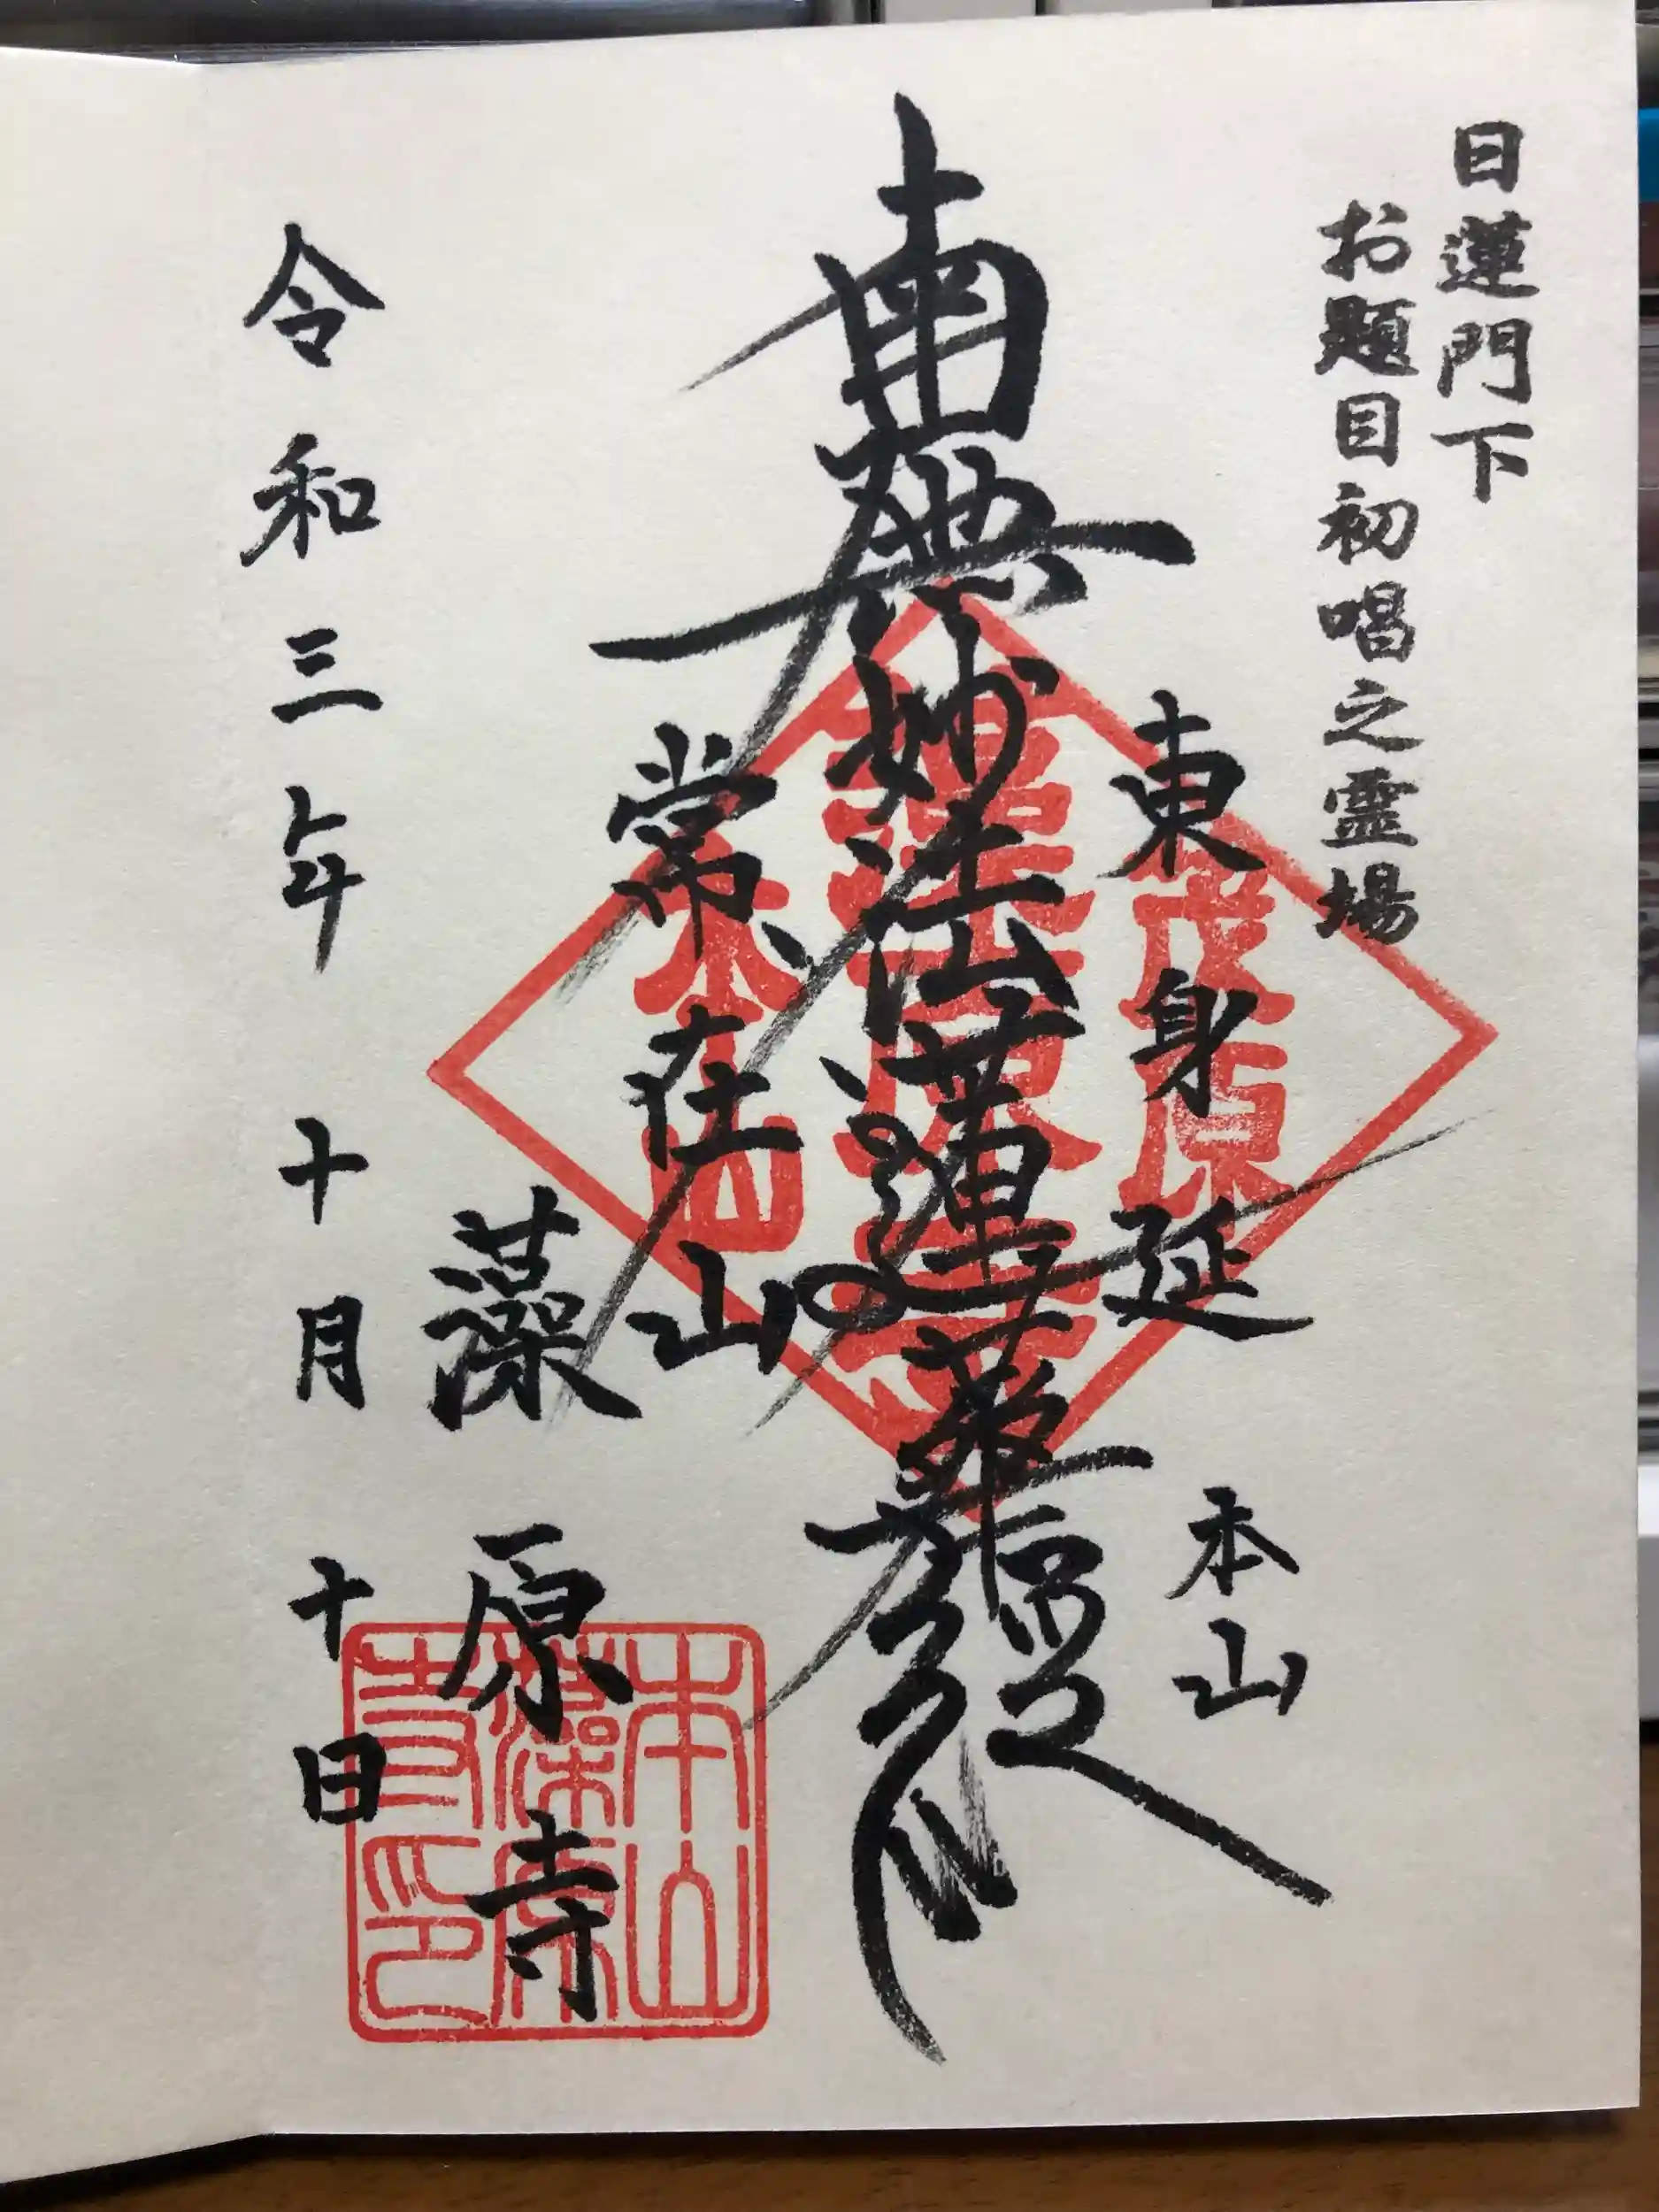 日蓮門下
お題目初唱之霊場
東身延
本山
南無妙法蓮華経
常在山
藻原寺
令和三年 十月 十日
茂原
藻原寺
本山
本山
藻原
寺印